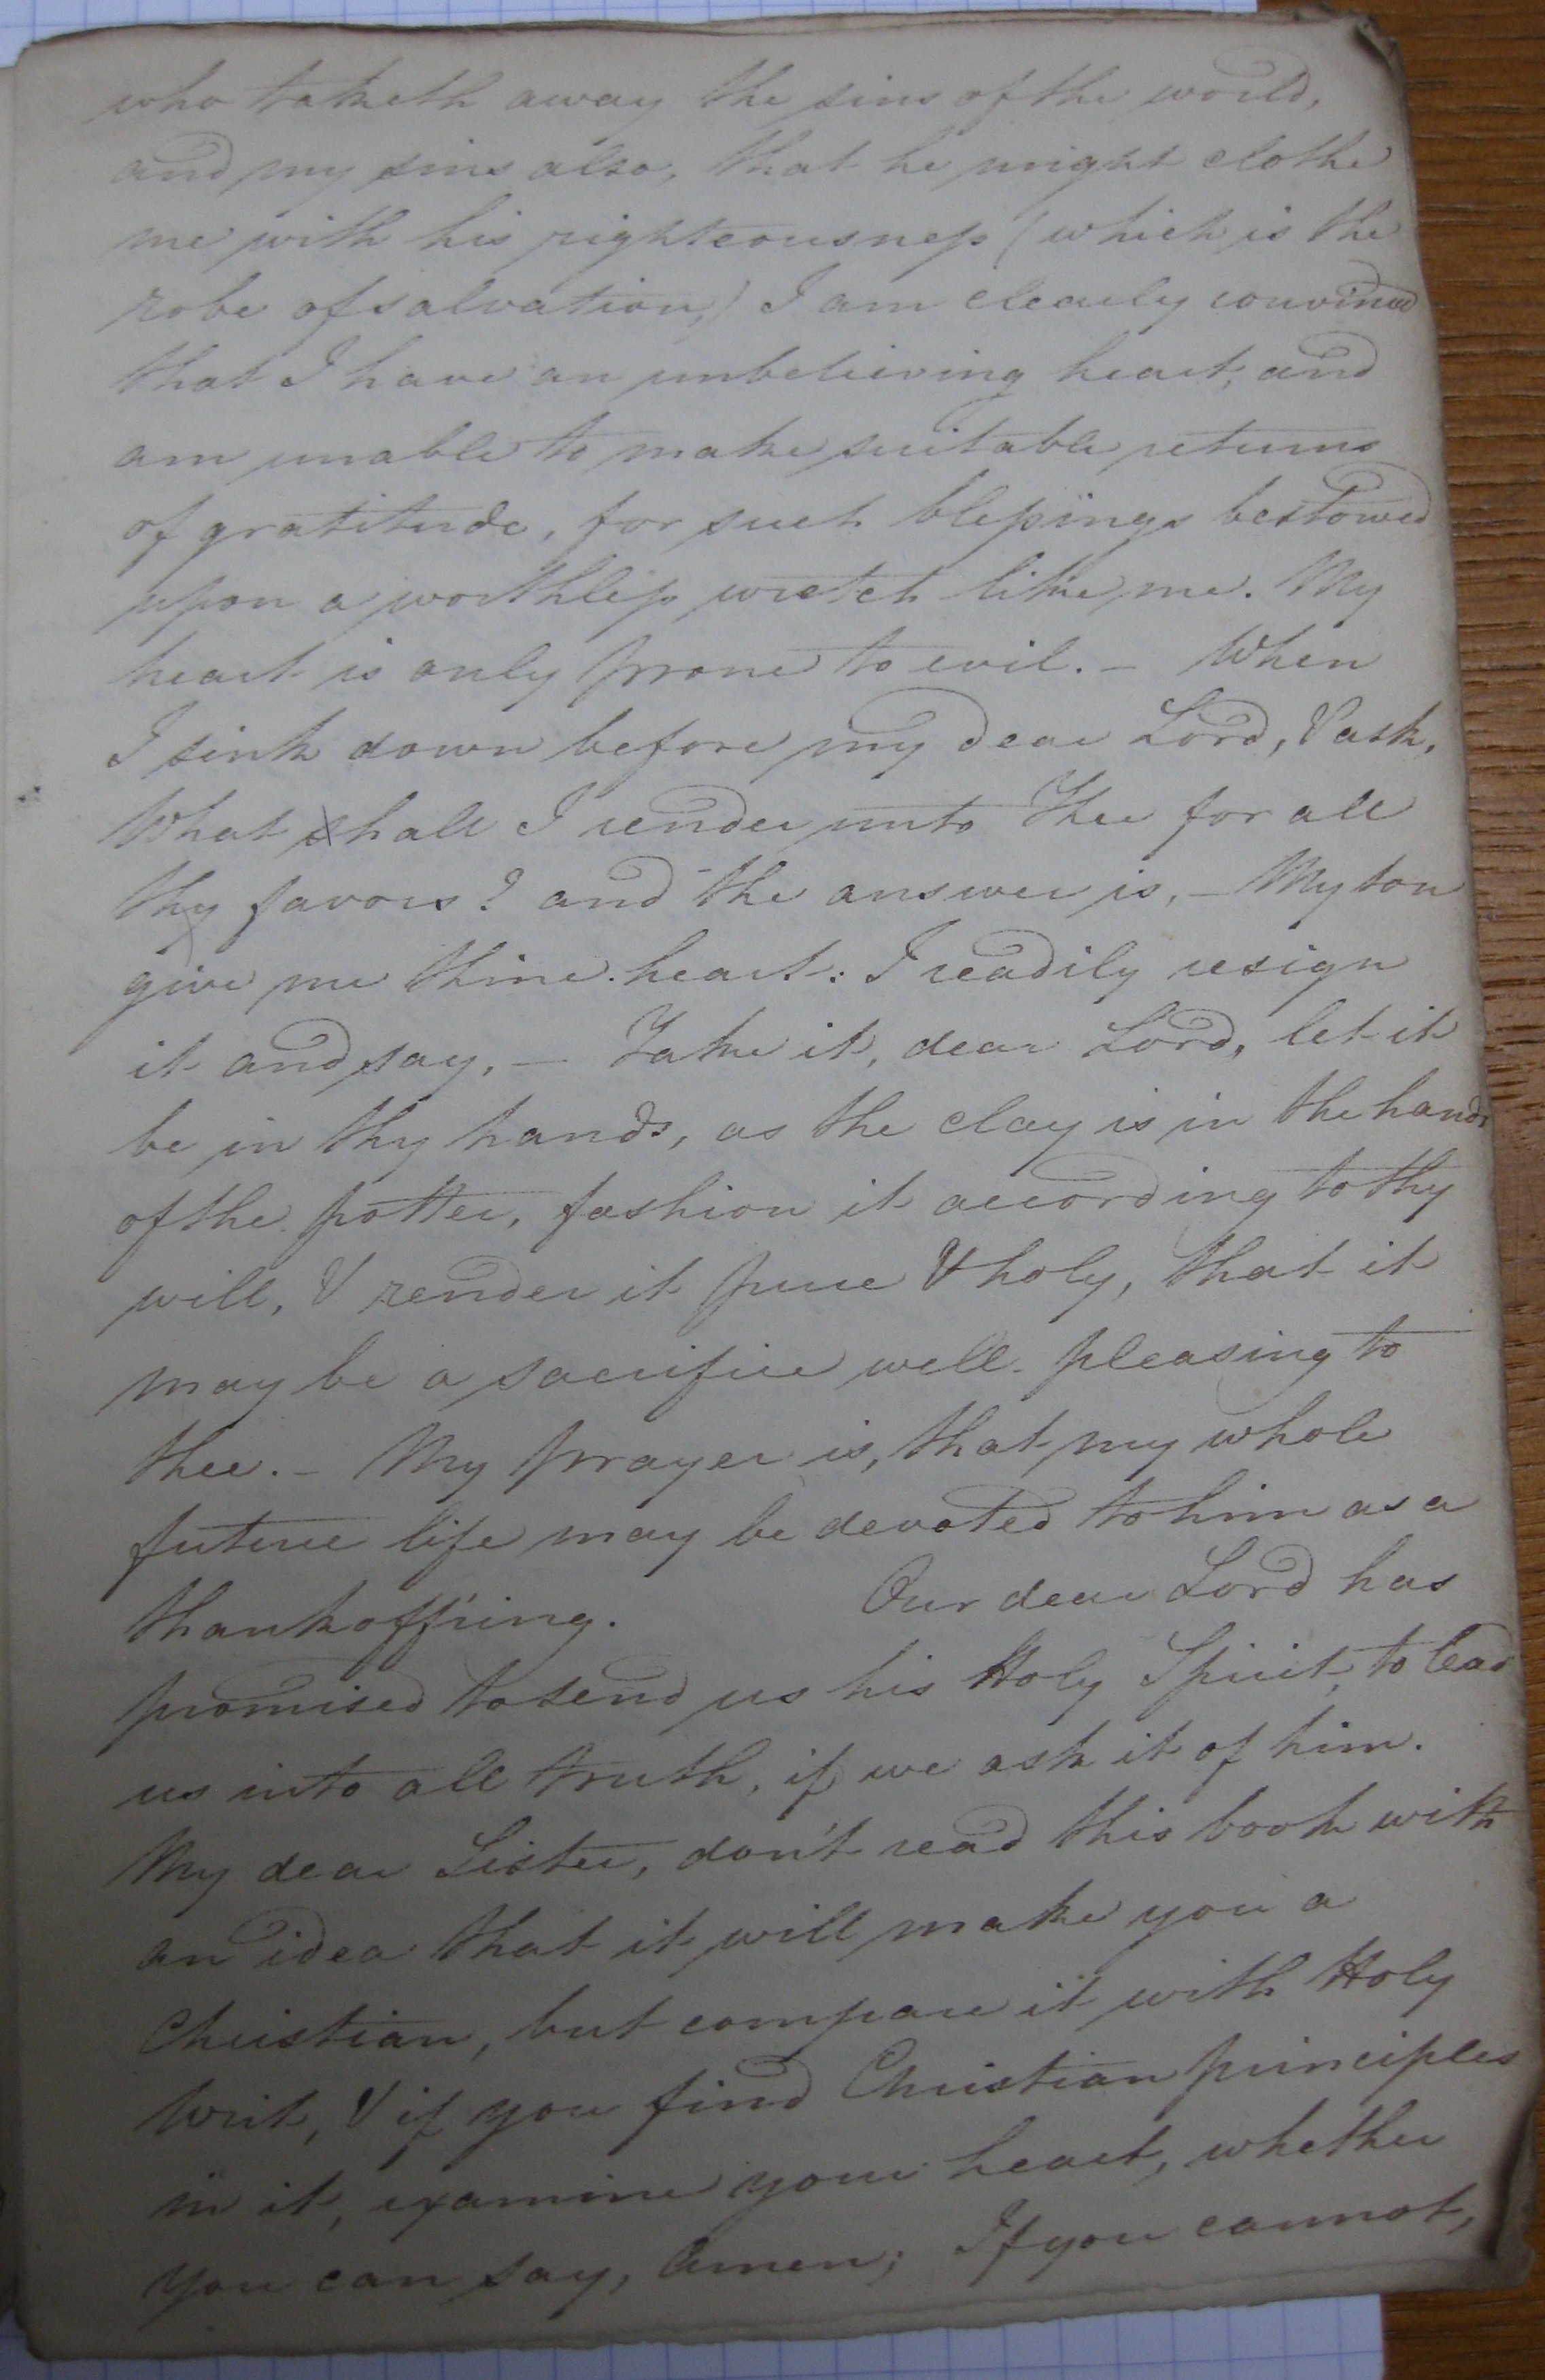 who taketh away the sins of the world,
and my sins also, that he might clothe
me with his righteousness (which is the
robe of salvation,) I am clearly convinced
that I have an unbelieving heart, and
am unable to make suitable returns
of gratitude, for such blessings bestowed
upon a worthless wretch like me. My
heart is only prone to evil. – When
I sink down before my dear Lord, & ask,
What shall I render unto Thee for all
thy favors? and the answer is, – My son
give me thine heart: I readily resign
it and say, – Take it, dear Lord, let it
be in thy hands, as the clay is in the hands
of the potter, fashion it according to thy
will, & render it pure & holy, that it
may be a sacrifice well-pleasing to
thee. – My prayer is, that my whole
future life may be devoted to him as a
thankoff'ring. Our dear Lord has
promised to send us his Holy Spirit, to lead
us into all truth, if we ask it of him.
My dear Sister, don't read this book with
an idea that it will make you a
Christian, but compare it with Holy
Writ, & if you find Christian principles
in it, examine your heart, whether
you can say, Amen; If you cannot,